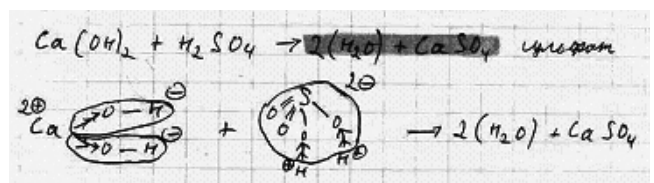 Ca(OH)₂ + H₂SO₄ → 2(H₂O) + CaSO₄
2⊕ Ca O – H ⊖ O – H ⊖ + S O O O O H ⊕ H ⊕ 2⊖ → 2(H₂O) + CaSO₄